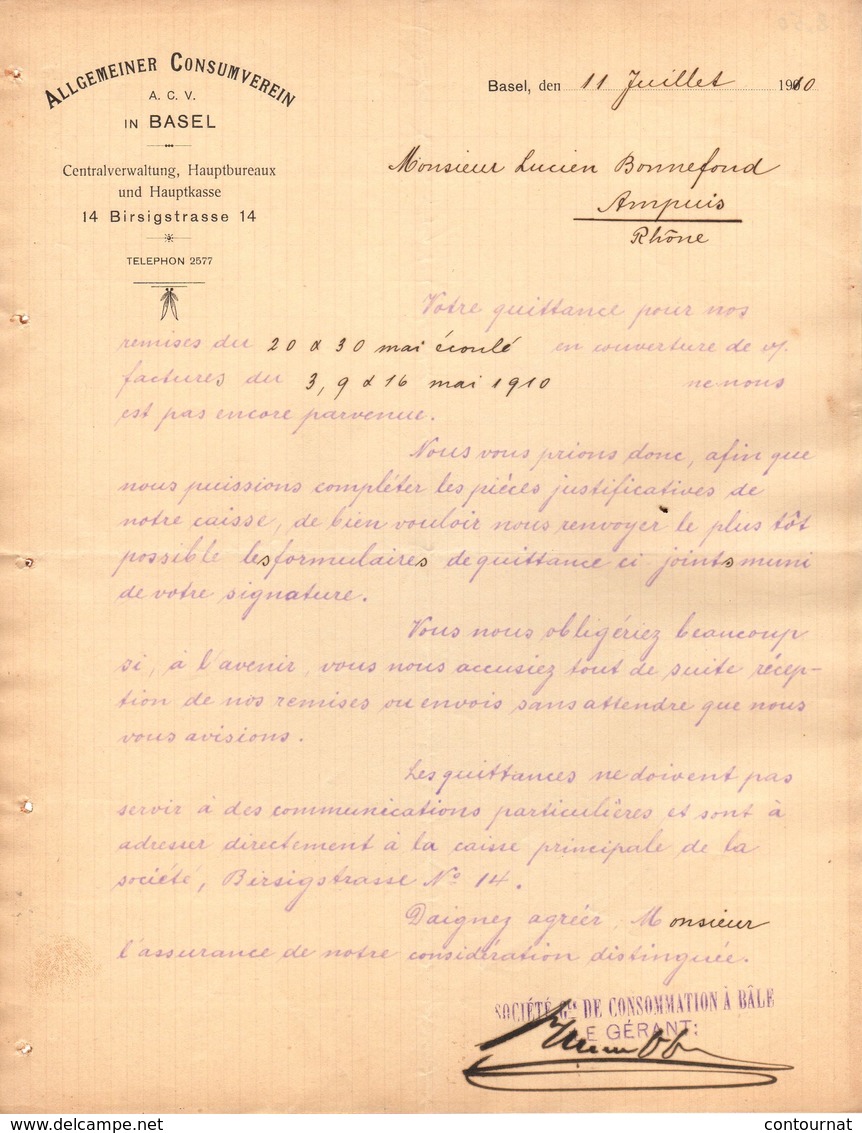 ALLGEMEINER CONSUMVEREIN
A. C. V.
IN BASEL
Centralverwaltung, Hauptbureaux
und Hauptkasse
14 Birsigstrasse 14
TELEPHON 2577
Basel, den 11 Juillet 1910
Monsieur Lucien Bonnefond
Ampuis
Rhône
Votre quittance pour nos
remises du 20 & 30 mai écoulé en couverture de v/.
factures du 3, 9 & 16 mai 1910 ne nous
est pas encore parvenue.
Nous vous prions donc, afin que
nous puissions compléter les pièces justificatives de
notre caisse, de bien vouloir nous renvoyer le plus tôt
possible les formulaires de quittance ci-joints muni
de votre signature.
Vous nous obligériez beaucoup
si, à l'avenir, vous nous accusiez tout de suite récep-
tion de nos remises ou envois sans attendre que nous
vous avisions.
Les quittances ne doivent pas
servir à des communications particulières et sont à
adresser directement à la caisse principale de la
société, Birsigstrasse No 14.
Daignez agréer, Monsieur
l'assurance de notre considération distinguée.
SOCIÉTÉ Gle DE CONSOMMATION À BÂLE
LE GÉRANT:
delcampe.net
contournat